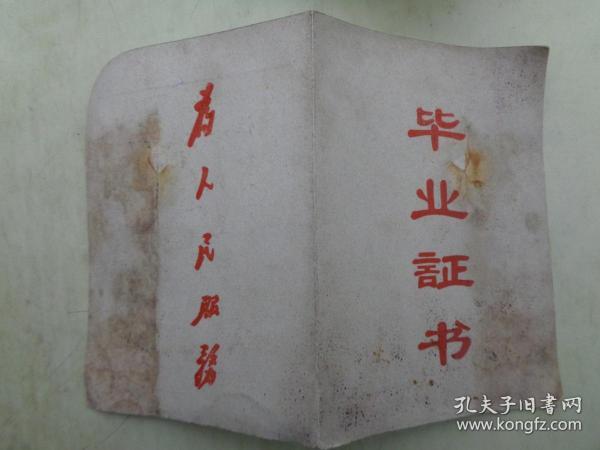 毕业証书
为人民服務
孔夫子旧書网
www.kongfz.com